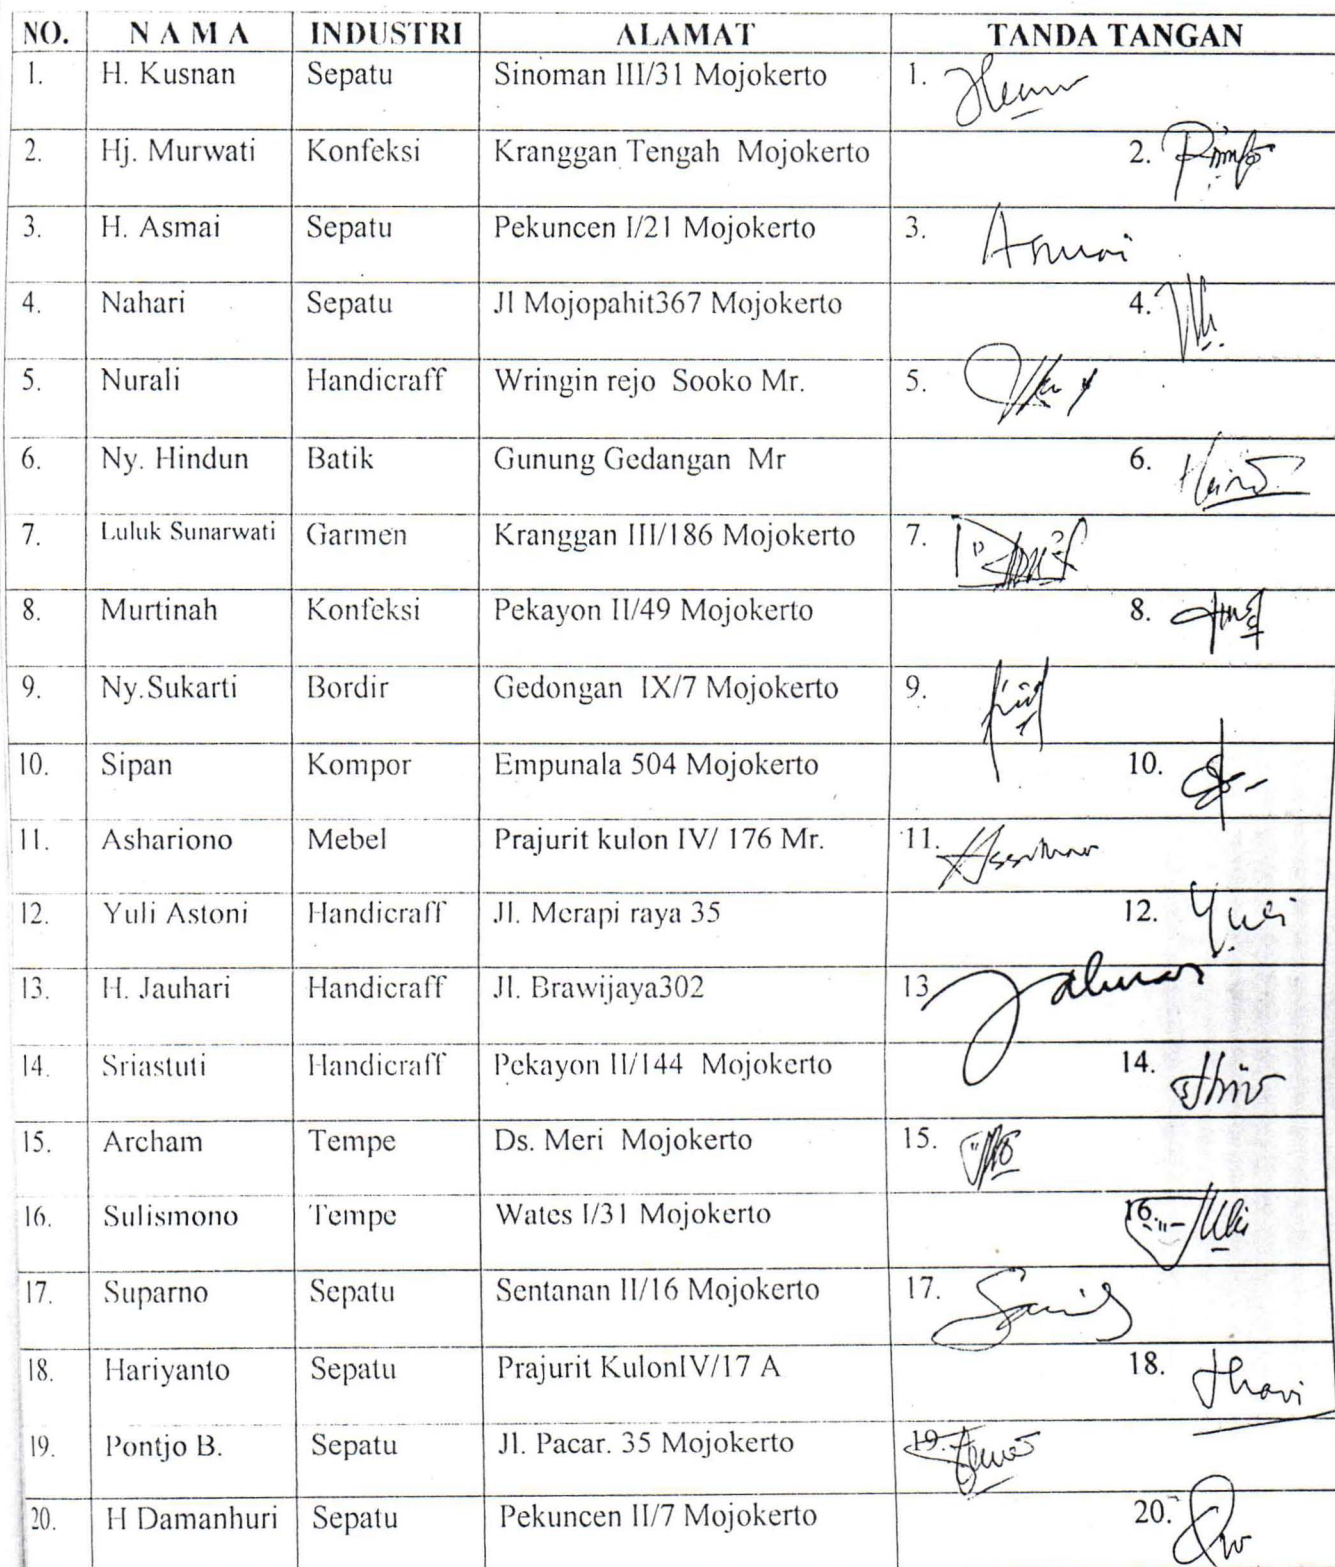 NO. N A M A INDUSTRI ALAMAT TANDA TANGAN
1. H. Kusnan Sepatu Sinoman III/31 Mojokerto 1.
2. Hj. Murwati Konfeksi Kranggan Tengah Mojokerto 2.
3. H. Asmai Sepatu Pekuncen I/21 Mojokerto 3. Asmai
4. Nahari Sepatu Jl Mojopahit367 Mojokerto 4.
5. Nurali Handicraff Wringin rejo Sooko Mr. 5.
6. Ny. Hindun Batik Gunung Gedangan Mr 6.
7. Luluk Sunarwati Garmen Kranggan III/186 Mojokerto 7.
8. Murtinah Konfeksi Pekayon II/49 Mojokerto 8.
9. Ny.Sukarti Bordir Gedongan IX/7 Mojokerto 9.
10. Sipan Kompor Empunala 504 Mojokerto 10.
11. Ashariono Mebel Prajurit kulon IV/ 176 Mr. 11.
12. Yuli Astoni Handicraff Jl. Merapi raya 35 12. Yuli
13. H. Jauhari Handicraff Jl. Brawijaya302 13
14. Sriastuti Handicraff Pekayon II/144 Mojokerto 14.
15. Archam Tempe Ds. Meri Mojokerto 15.
16. Sulismono Tempe Wates I/31 Mojokerto 16.
17. Suparno Sepatu Sentanan II/16 Mojokerto 17.
18. Hariyanto Sepatu Prajurit KulonIV/17 A 18.
19. Pontjo B. Sepatu Jl. Pacar. 35 Mojokerto 19.
20. H Damanhuri Sepatu Pekuncen II/7 Mojokerto 20.